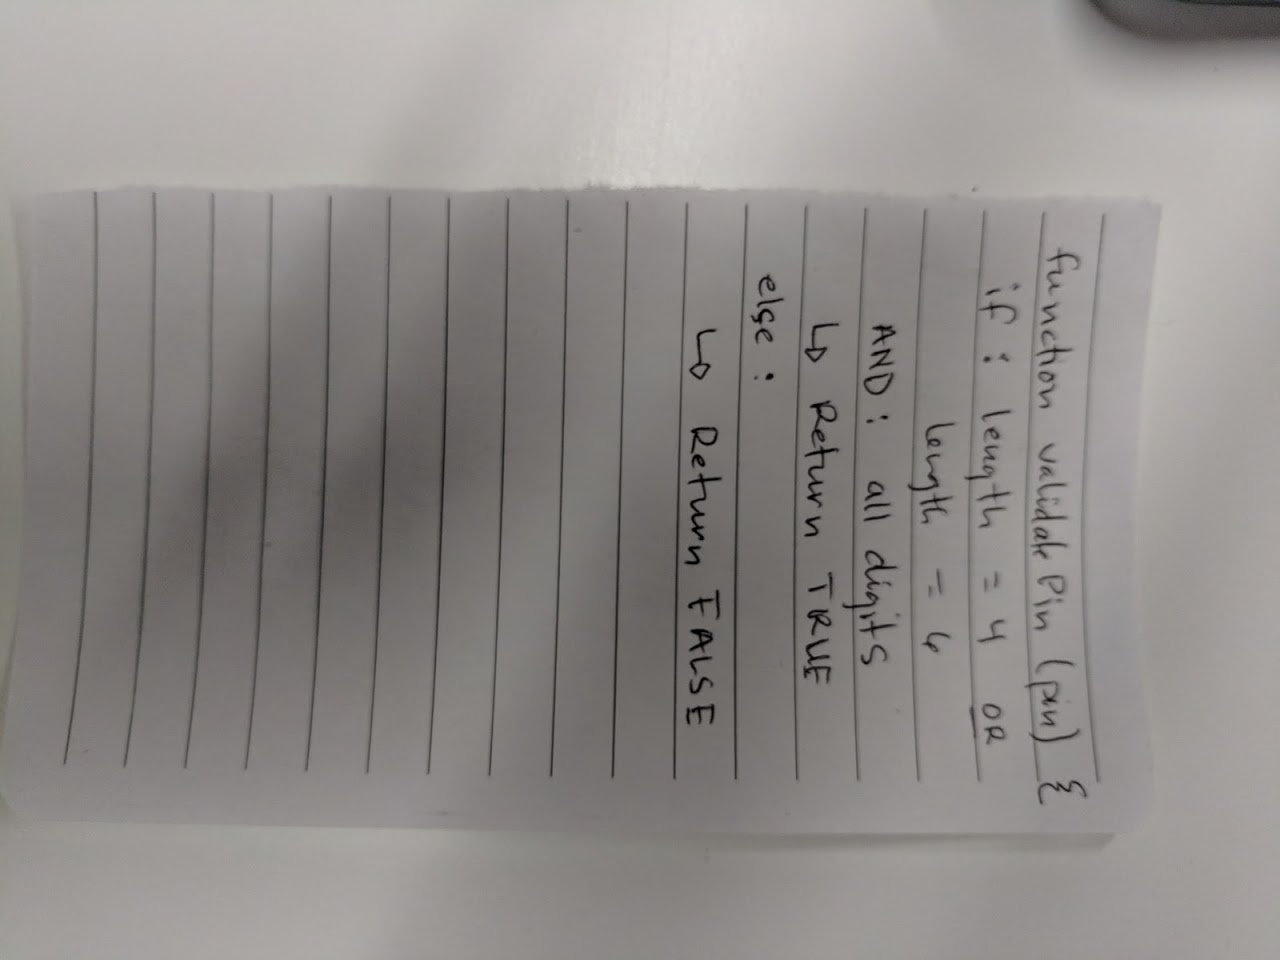 function validatePin (pin) {
if : length = 4 OR
length = 6
AND : all digits
↳ Return TRUE
else :
↳ Return FALSE